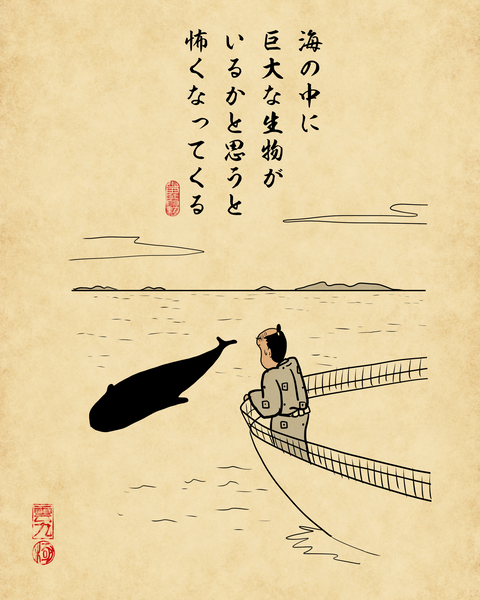 海の中に
巨大な生物が
いるかと思うと
怖くなってくる